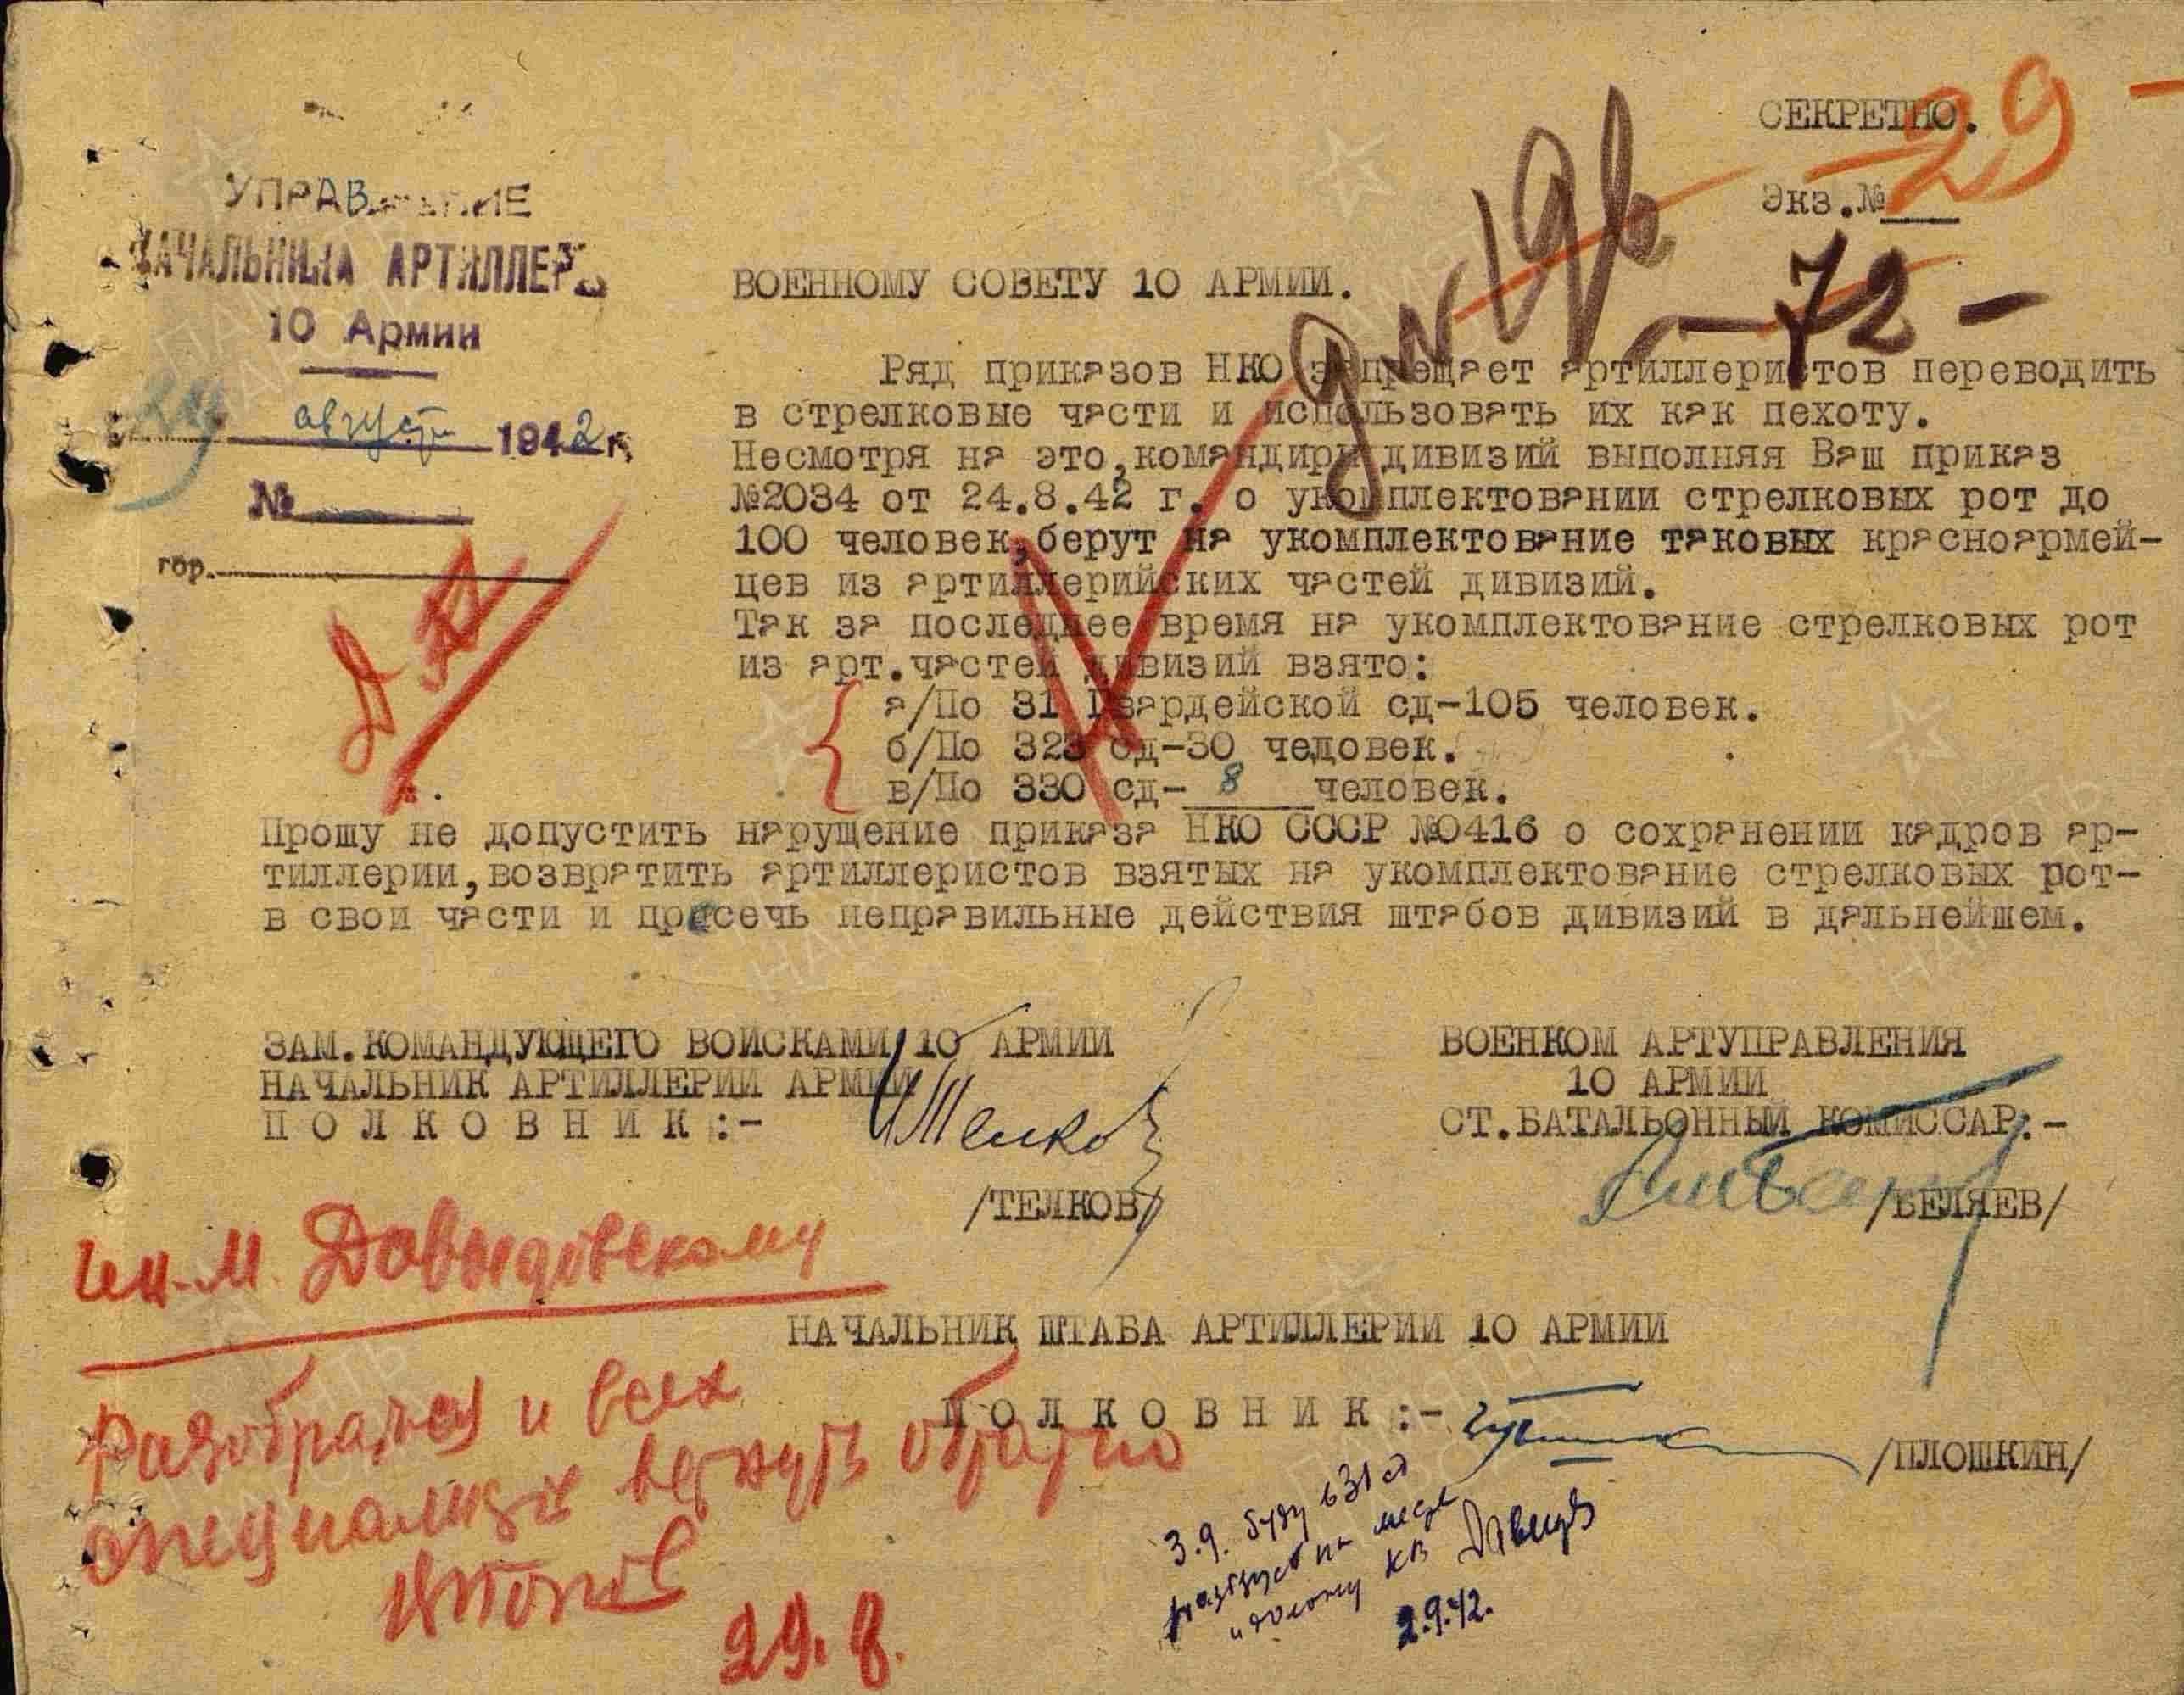 СЕКРЕТНО.
29
Экз.№
72 -
УПРАВЛЕНИЕ
НАЧАЛЬНИКА АРТИЛЛЕР
10 Армии
август 1942 г.
№
гор.
ВОЕННОМУ СОВЕТУ 10 АРМИИ.
Ряд приказов НКО запрещает артиллеристов переводить
в стрелковые части и использовать их как пехоту.
Несмотря на это,командиры дивизий выполняя Ваш приказ
№2034 от 24.8.42 г. о укомплектовании стрелковых рот до
100 человек,берут на укомплектование таковых красноармей-
цев из артиллерийских частей дивизий.
Так за последнее время на укомплектование стрелковых рот
из арт.частей дивизий взято:
а/По 31 Гвардейской сд-105 человек.
б/По 323 сд-30 человек.
в/По 330 сд- 8 человек.
Прошу не допустить нарущение приказа НКО СССР №0416 о сохранении кадров ар-
тиллерии,возвратить артиллеристов взятых на укомплектование стрелковых рот-
в свои части и пресечь неправильные действия штабов дивизий в дальнейшем.
ЗАМ.КОМАНДУЮЩЕГО ВОЙСКАМИ 10 АРМИИ
НАЧАЛЬНИК АРТИЛЛЕРИИ АРМИИ
ПОЛКОВНИК:-
/ТЕЛКОВ/
ВОЕНКОМ АРТУПРАВЛЕНИЯ
10 АРМИИ
СТ.БАТАЛЬОННЫЙ КОМИССАР:-
/БЕЛЯЕВ/
Давыдовскому
НАЧАЛЬНИК ШТАБА АРТИЛЛЕРИИ 10 АРМИИ
ПОЛКОВНИК:-
/ПЛОШКИН/
Разобраться и всех
вернуть обратно
29.8.
3.9. буду в 31 сд
на месте
и доложу
2.9.42.